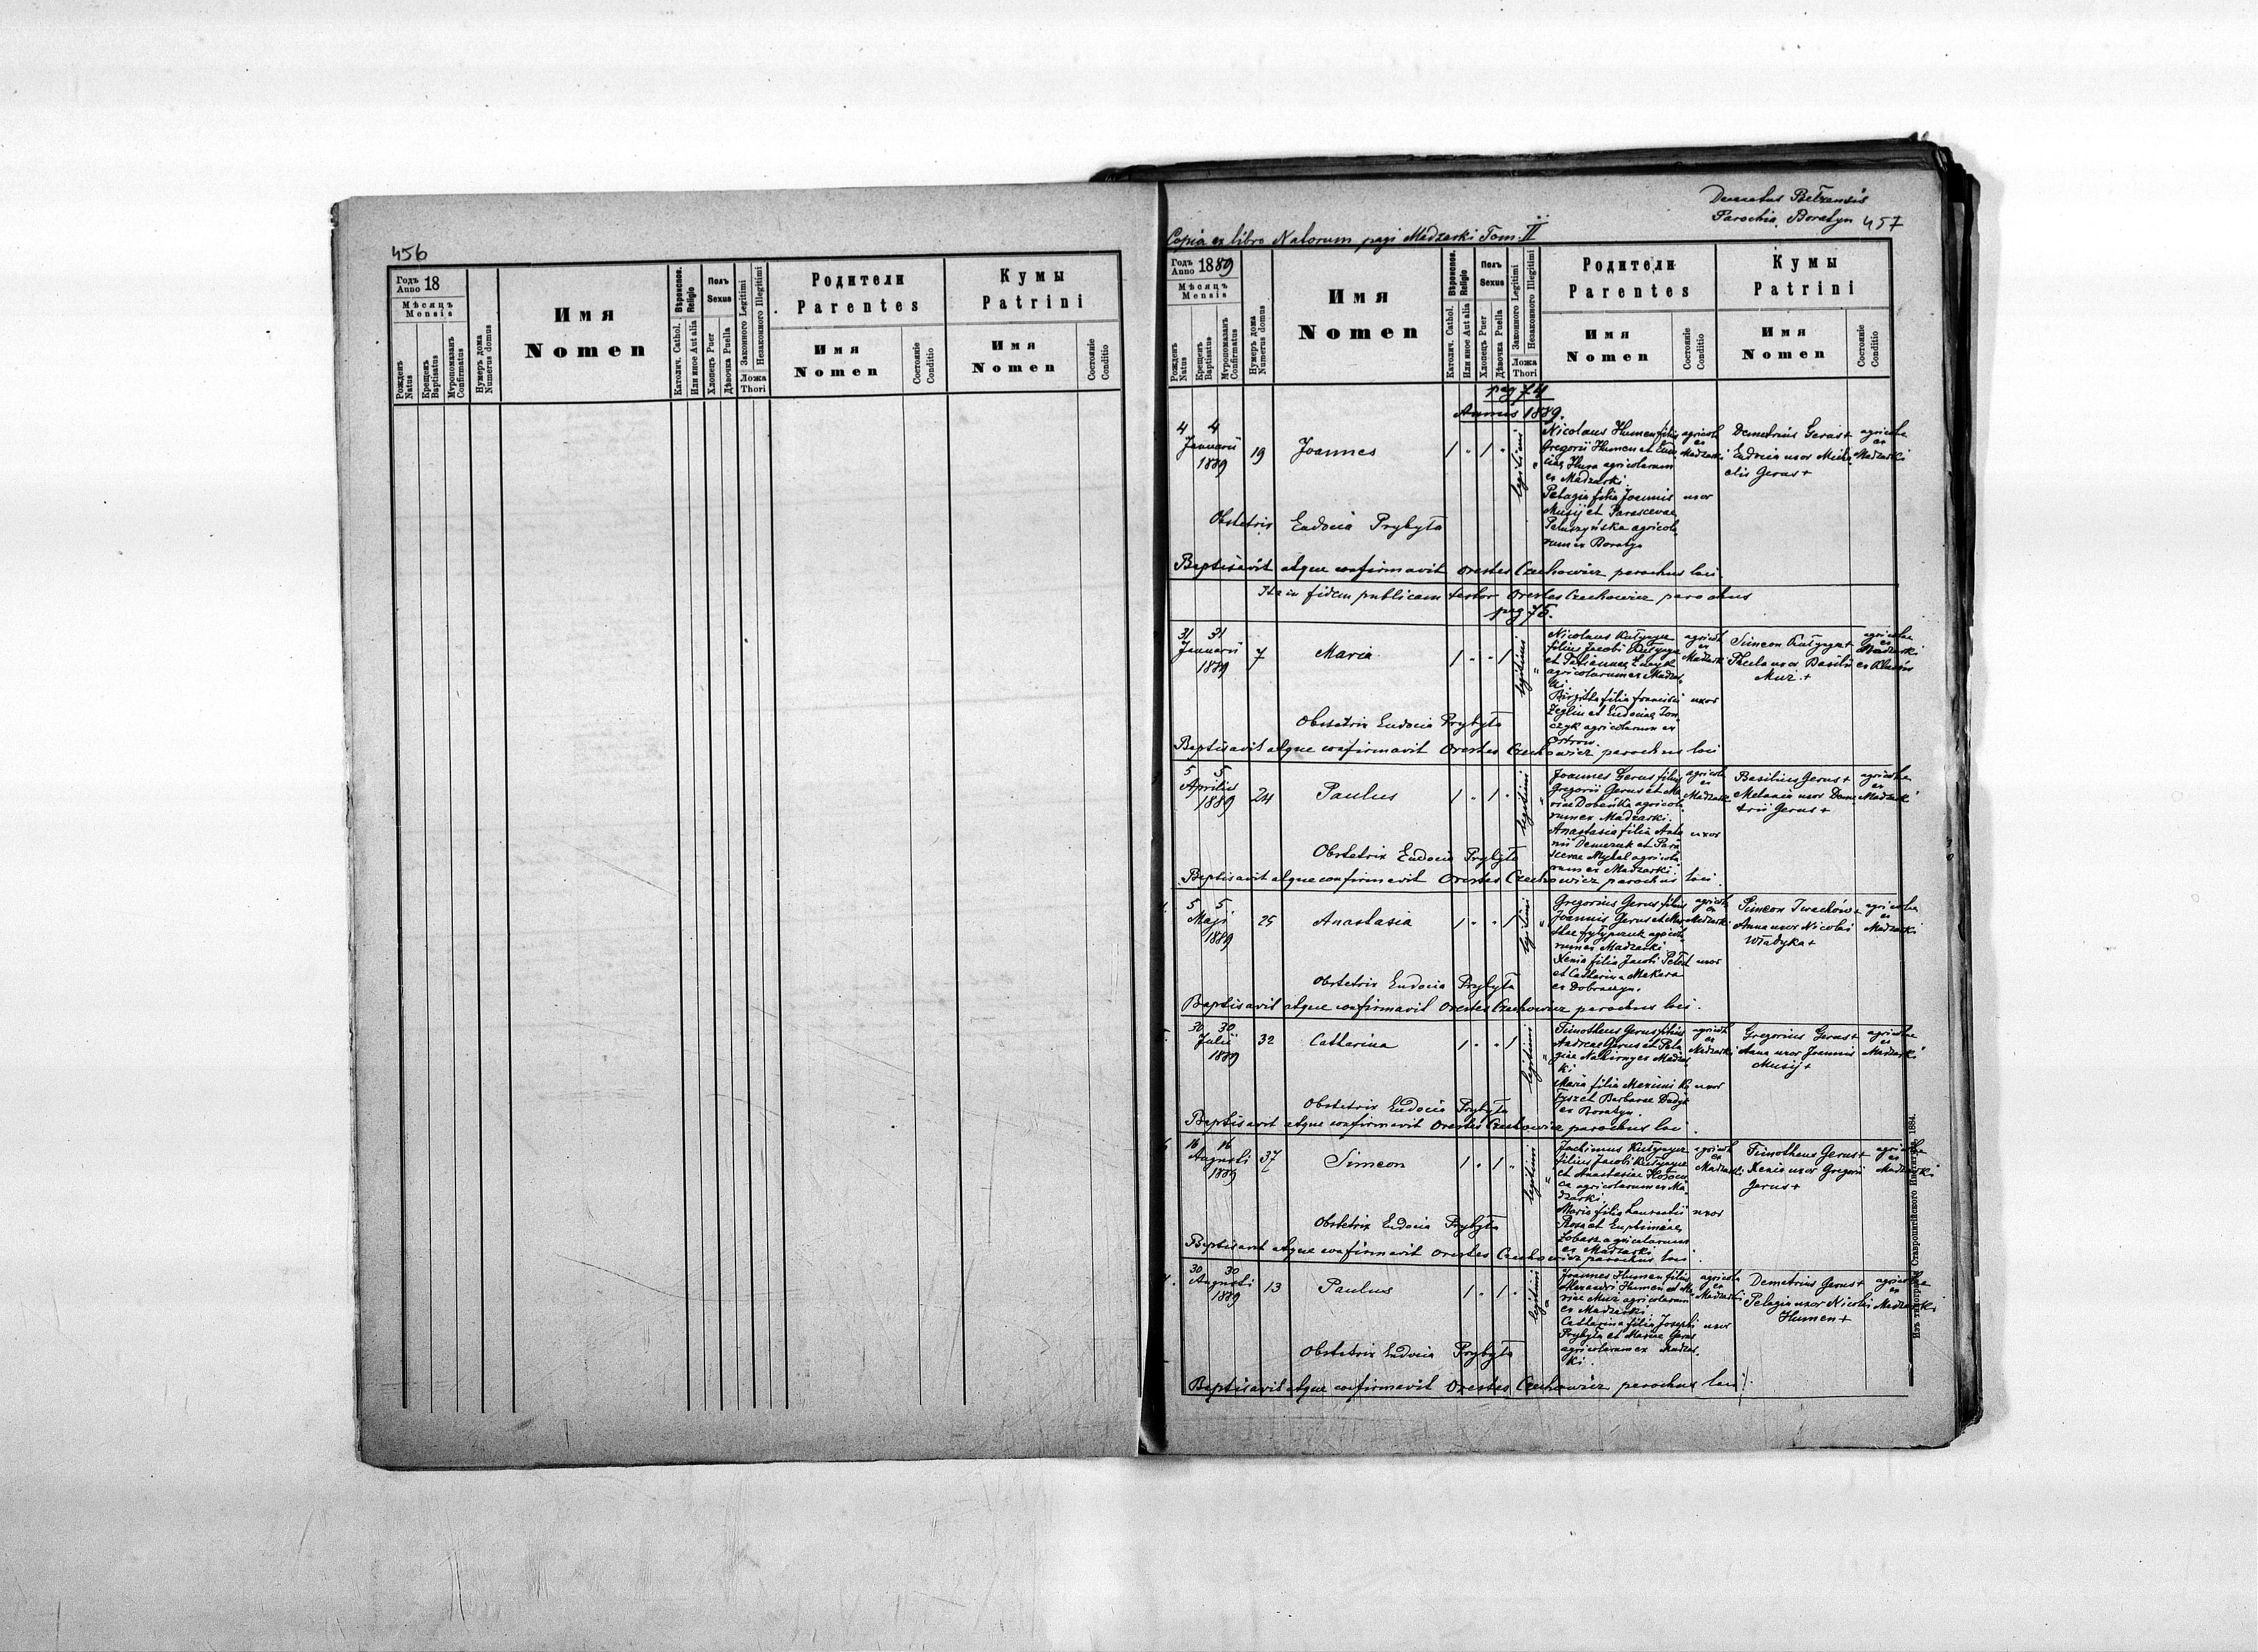 456
Годъ Anno 18
Мѣсяцъ Mensis
Рожденъ Natus
Крещенъ Baptisatus
Мѵропомазанъ Confirmatus
Нумеръ дома Numerus domus
Имя
Nomen
Вѣроисповѣд. Religio
Католич. Cathol.
Или иное Aut alia
Полъ Sexus
Хлопецъ Puer
Дѣвочка Puella
Законного Legitimi
Незаконного Illegitimi
Ложа Thori
Родители
Parentes
Имя Nomen
Состояніе Conditio
Кумы
Patrini
Имя Nomen
Состояніе Conditio
Decanatus Bełzensis
Parochia Boratyn 457
Copia ex libro Natorum pagi Madzarki Tom. II
Годъ Anno 1889
Мѣсяцъ Mensis
Рожденъ Natus
Крещенъ Baptisatus
Мѵропомазанъ Confirmatus
Нумеръ дома Numerus domus
Имя
Nomen
Религio
Католич. Cathol.
Или иное Aut alia
Полъ Sexus
Хлопецъ Puer
Дѣвочка Puella
Законного Legitimi
Незаконного Illegitimi
Ложа Thori
Родители
Parentes
Имя Nomen
Состояніе Conditio
Кумы
Patrini
Имя Nomen
Состояніе Conditio
pag 74
Annus 1889.
4 4 Januarii 1889
19
Joannes
legitimi
Nicolaus Humen filius
Gregorii Humen et
agricolarum
ex Madzarki
Pelagia filia Joannis uxor
Musij et Parascevae
agricola
rum ex Boratyn
agricola ex Madzarki
Demetrius Gerus +
Eudocia uxor Micha
elis Gerus +
agricolae ex Madzarki
Obstetrix Eudocia Prybyła
Baptisavit atque confirmavit Orestes Czechowicz parochus loci.
Ita in fidem publicam testor Orestes Czechowicz parochus
pag 75.
31 31 Januarii 1889
7
Maria
legitimi
Nicolaus
filius Jacobi
et
agricolarum ex Madzar
ki.
filia Francisci uxor
et Eudociae
agricolarum ex
Ostrow.
agricola ex Madzarki
Simeon +
Thecla uxor Basilii
Muz. +
agricolae ex Madzarki
Obstetrix Eudocia Prybyła
Baptisavit atque confirmavit Orestes Czechowicz parochus loci
5 5 Aprilis 1889
24
Paulus
legitimi
Joannes Gerus filius
Gregorii Gerus et Ma
riae agricola
rum ex Madzarki.
Anastasia filia Anto uxor
nii et Para
scevae agricola
rum ex Madzarki.
agricola ex Madzarki
Basilius Gerus +
Melania uxor Deme
trii Gerus +
agricolae ex Madzarki
Obstetrix Eudocia Prybyła
Baptisavit atque confirmavit Orestes Czechowicz parochus loci.
5 5 Maji 1889
25
Anastasia
legitimi
Gregorius Gerus filius
Joannis Gerus et
agricola
rum ex Madzarki
Xenia filia Jacobi uxor
et Catharina Makara
ex
agricola ex Madzarki
Simeon +
Anna uxor Nicolai
Władyka +
agricolae ex Madzarki
Obstetrix Eudocia Prybyła
Baptisavit atque confirmavit Orestes Czechowicz parochus loci.
30 30 Julii 1889
32
Catharina
legitimi
Timotheus Gerus filius
Andreae Gerus et Pela
giae ex Madzar
ki
Maria filia Maximi uxor
et Barbarae
ex Boratyn.
agricola ex Madzarki
Gregorius Gerus +
Anna uxor Joannis
Musij +
agricolae ex Madzarki
Obstetrix Eudocia Prybyła
Baptisavit atque confirmavit Orestes Czechowicz parochus loci.
16 16 Augusti 1889
37
Simeon
legitimi
Joachimus
filius Jacobi
et Anastasiae
agricolarum ex Ma
dzarki.
Maria filia Laurentii uxor
et Euphimiae
agricolarum
ex Madzarki
agricola ex Madzarki
Timotheus Gerus +
Xenia uxor Gregorii
Gerus +
agricolae ex Madzarki
Obstetrix Eudocia Prybyła
Baptisavit atque confirmavit Orestes Czechowicz parochus loci.
30 30 Augusti 1889
13
Paulus
legitimi
Joannes Humen filius
Alexandri Humen et Ma
riae Muz agricolarum
ex Madzarki.
Catharina filia Josephi uxor
Prybyła et Mariae Gerus
agricolarum ex Madzar
ki.
agricola ex Madzarki
Demetrius Gerus +
Pelagia uxor Nicolai
Humen +
agricolae ex Madzarki
Obstetrix Eudocia Prybyła
Baptisavit atque confirmavit Orestes Czechowicz parochus loci.
Изъ типографіи Ставропигійского Института 1884.